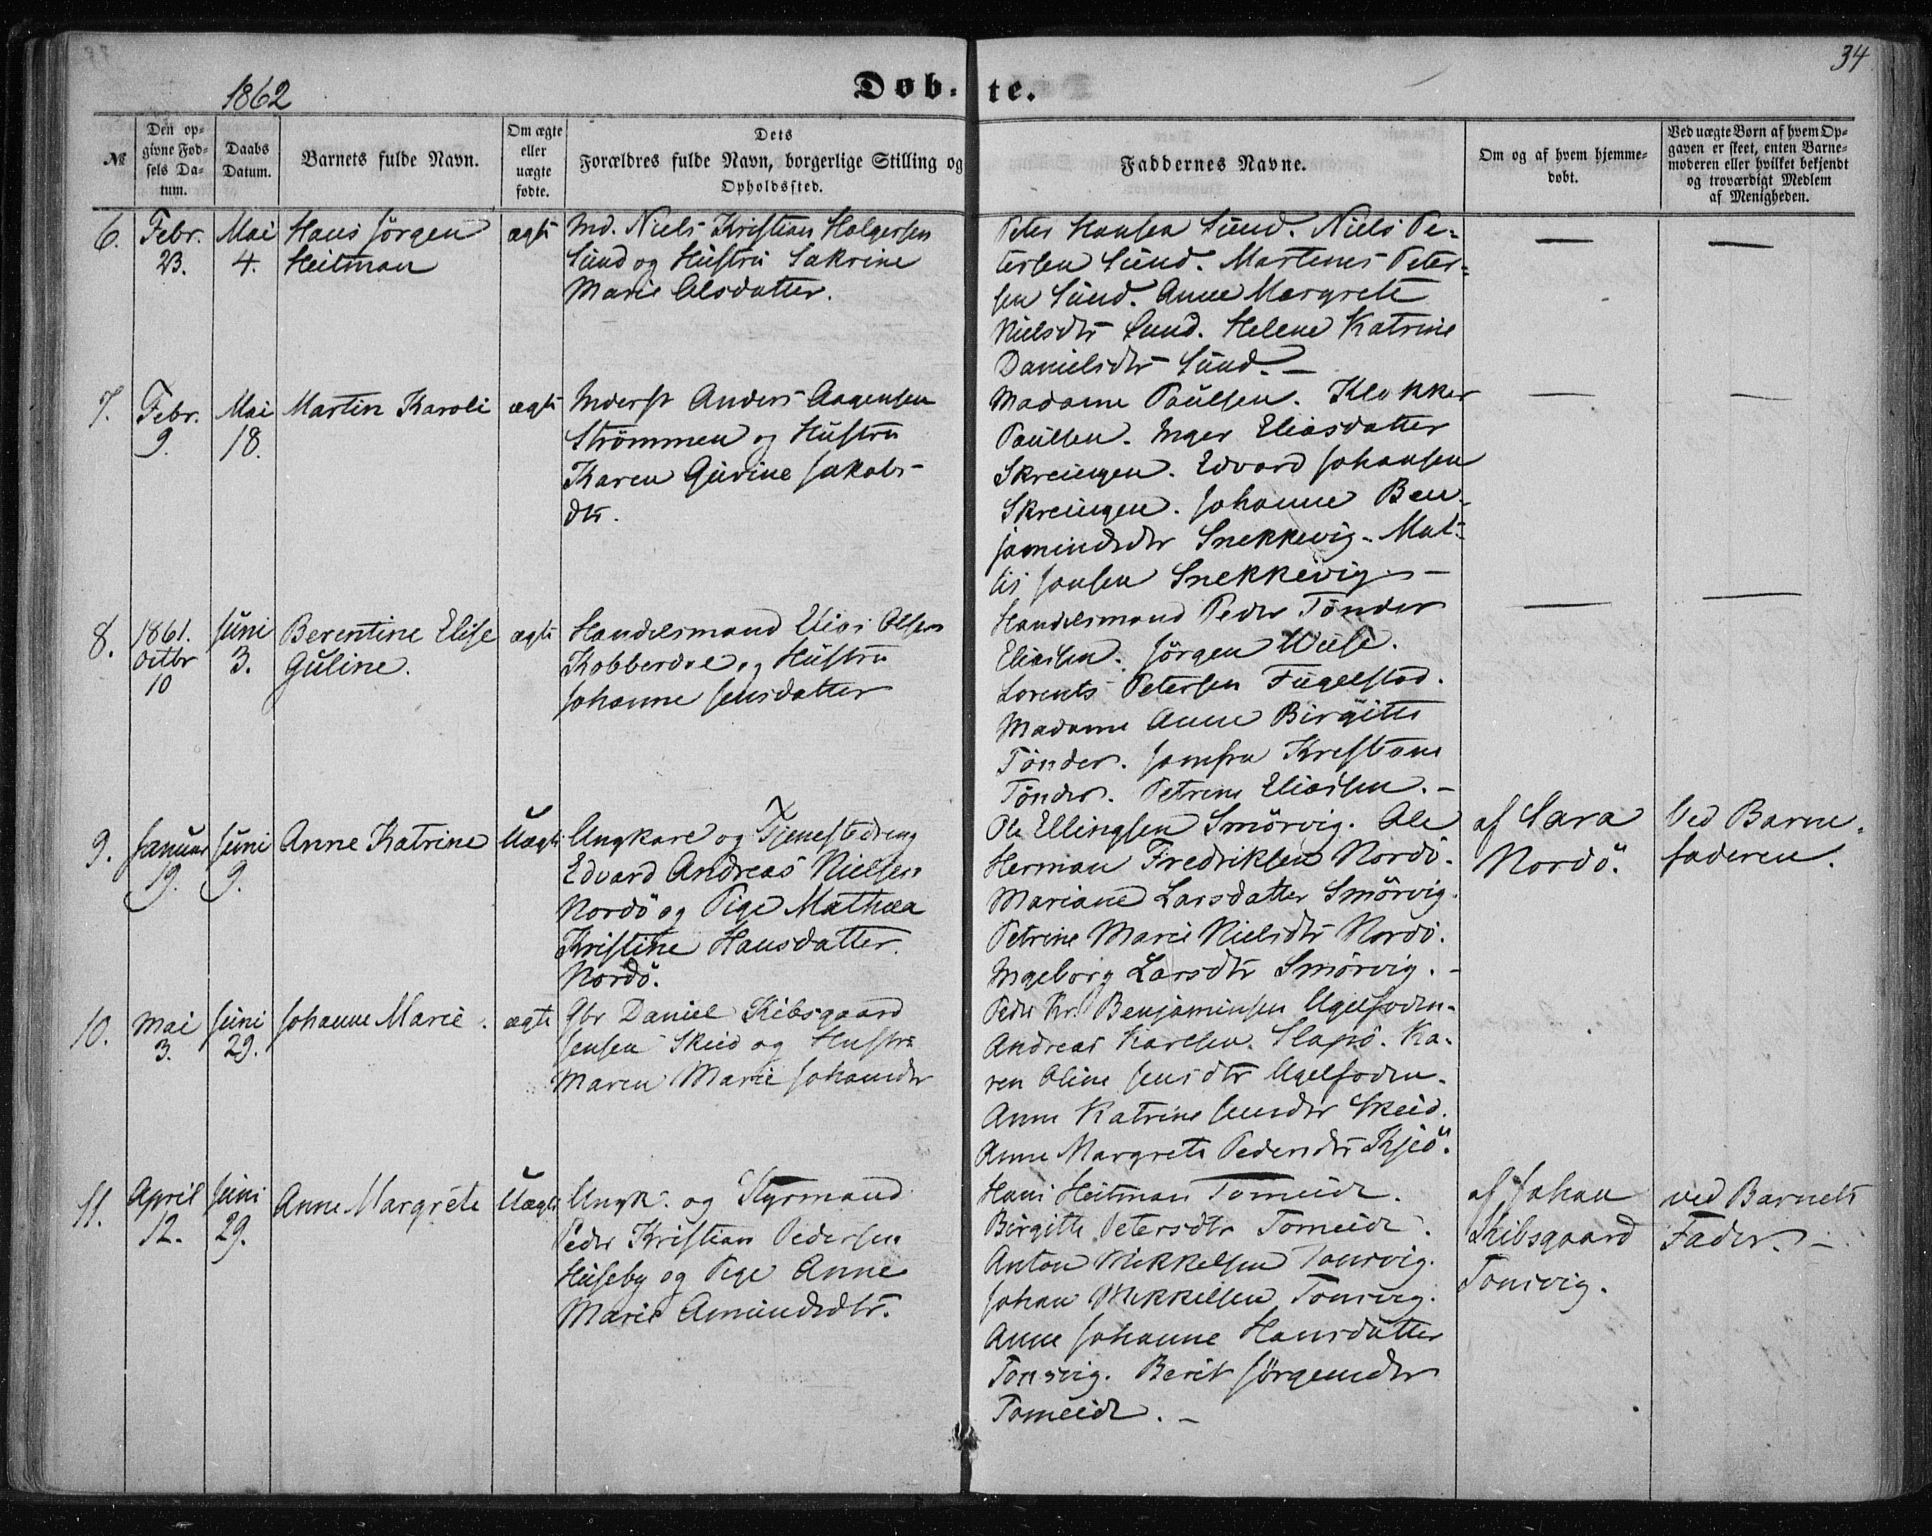 34
1862
Døb-te.
№
Den op-
givne Fød-
sels Da-
tum.
Daabs
Datum.
Barnets fulde Navn.
Om ægte
eller
uægte
fødte.
Dets
Forældres fulde Navn, borgerlige Stilling og
Opholdssted.
Faddernes Navne.
Om og af hvem hjemme-
døbt.
Ved uægte Børn af hvem Op-
gaven er skeet, enten Barne-
moderen eller hvilket bekjendt
og troværdigt Medlem
af Menigheden.
6.
Febr.
23.
Mai
4.
Hans Jörgen
Heitman
ægte
Md. Niels Kristian Holgersen
Sund og Hustru Sakrine
Marie Olsdatter.
Peter Hansen Sund. Niels Pe-
tersen Sund. Martines Peter-
sen Sund. Anne Margrete
Nielsdtr Sund. Helene Katrine
Danielsdtr Sund. —
—
—
7.
Febr.
9.
Mai
18.
Martin Karoli
ægte
Inderst Anders Aagensen
Strömmen og Hustru
Karen Gurine Jakobs-
dtr.
Madame Paulsen. Klokker
Paulsen. Inger Eliasdatter
Skreingen. Edvard Johansen
Skreingen. Johanne Ben-
jamindsdtr Snekkevig. Mat-
tis Jonsen Snekkevig. —
—
—
8.
1861.
Octbr
10
Juni
3.
Berentine Elise
Guline.
ægte
Handelsmand Elias Olsen
Kobberdal og Hustru
Johanne Jensdatter
Handelsmand Peder Tönder
Eliassen. Jörgen Weise.
Lorents Petersen Fugelstad.
Madame Anne Birgitte
Tönder. Jomfru Kristiane
Tönder. Petrine Eliassen. —
—
—
9.
Januar
19.
Juni
9.
Anne Katrine
Uægte
Ungkarl og Tjenestedreng
Edvard Andreas Nielsen
Nordö og Pige Mathea
Kristine Hansdatter
Nordö.
Ole Ellingsen Smörvig. Ole
Herman Fredriksen Nordö.
Mariane Larsdatter Smörvig.
Petrine Marie Nielsdtr Nordö.
Ingeborg Larsdtr Smörvig. —
af Sara
Nordö.
Ved Barne-
faderen.
10.
Mai
3.
Juni
29.
Johanne Marie.
ægte
Gbr Daniel Kibsgaard
Jensen Skeid og Hustru
Maren Marie Johansdtr
Peder Kr. Benjaminsen Ugelfoden.
Andreas Karlsen Slapö. Ka-
ren Oline Jensdtr Ugelfoden.
Anne Katrine Jensdtr Skeid.
Anne Margrete Pedersdtr Kjeö.
11.
April
12.
Juni
29.
Anne Margrete
Uægte
Ungk. og Styrmand
Peder Kristian Pedersen
Huseby og Pige Anne
Marie Amundsdtr.
Hans Heitman Tomeide.
Birgitte Petersdtr Tomeide.
Anton Mikkelsen Tonsvig.
Johan Mikkelsen Tonsvig.
Anne Johanne Hansdatter
Tonsvig. Berit Jörgensdtr
Tomeide. —
af Johan
Kibsgaard
Tonsvig.
ved Barnets
Fader. —